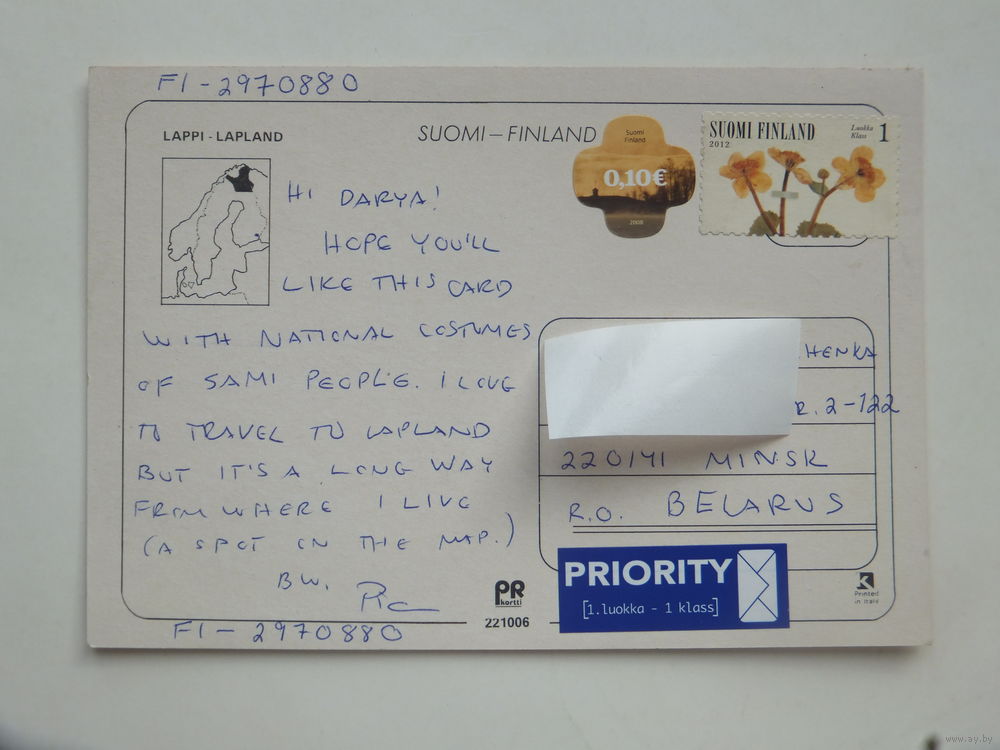 FI-2970880
LAPPI - LAPLAND
SUOMI – FINLAND
Suomi
Finland
0,10€
2008
SUOMI FINLAND
2012
Luokka
Klass
1
HI DARYA!
HOPE YOU'LL
LIKE THIS CARD
WITH NATIONAL COSTUMES
OF SAMI PEOPLE. I LOVE
TO TRAVEL TO LAPLAND
BUT IT'S A LONG WAY
FROM WHERE I LIVE
(A SPOT ON THE MAP.)
BW.
FI-2970880
HENKA
R. 2-122
220141 MINSK
R.O. BELARUS
PRIORITY
[1.luokka - 1 klass]
PR
kortti
221006
K
Printed
in Italy
www.ay.by